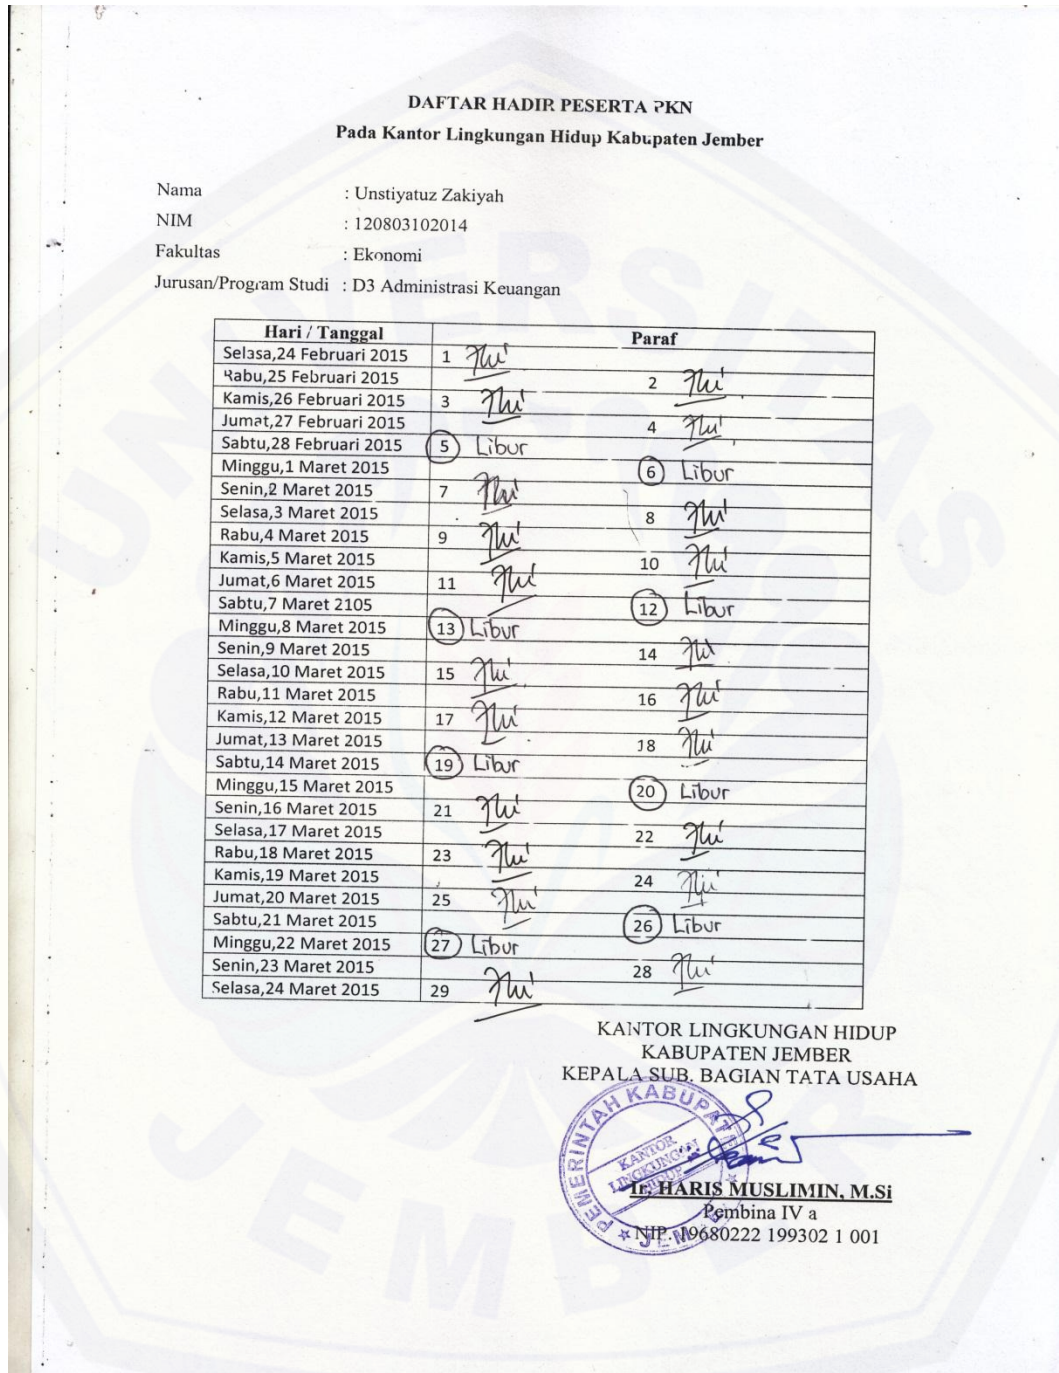 DAFTAR HADIR PESERTA PKN
Pada Kantor Lingkungan Hidup Kabupaten Jember
Nama : Unstiyatuz Zakiyah
NIM : 120803102014
Fakultas : Ekonomi
Jurusan/Program Studi : D3 Administrasi Keuangan
Hari / Tanggal Paraf
Selasa,24 Februari 2015 1
Rabu,25 Februari 2015 2
Kamis,26 Februari 2015 3
Jumat,27 Februari 2015 4
Sabtu,28 Februari 2015 5 Libur
Minggu,1 Maret 2015 6 Libur
Senin,2 Maret 2015 7
Selasa,3 Maret 2015 8
Rabu,4 Maret 2015 9
Kamis,5 Maret 2015 10
Jumat,6 Maret 2015 11
Sabtu,7 Maret 2105 12 Libur
Minggu,8 Maret 2015 13 Libur
Senin,9 Maret 2015 14
Selasa,10 Maret 2015 15
Rabu,11 Maret 2015 16
Kamis,12 Maret 2015 17
Jumat,13 Maret 2015 18
Sabtu,14 Maret 2015 19 Libur
Minggu,15 Maret 2015 20 Libur
Senin,16 Maret 2015 21
Selasa,17 Maret 2015 22
Rabu,18 Maret 2015 23
Kamis,19 Maret 2015 24
Jumat,20 Maret 2015 25
Sabtu,21 Maret 2015 26 Libur
Minggu,22 Maret 2015 27 Libur
Senin,23 Maret 2015 28
Selasa,24 Maret 2015 29
KANTOR LINGKUNGAN HIDUP
KABUPATEN JEMBER
KEPALA SUB. BAGIAN TATA USAHA
PEMERINTAH KABUPATEN
KANTOR
LINGKUNGAN
HIDUP
JEMBER
Ir. HARIS MUSLIMIN, M.Si
Pembina IV a
NIP. 19680222 199302 1 001
UNIVERSITAS
JEMBER